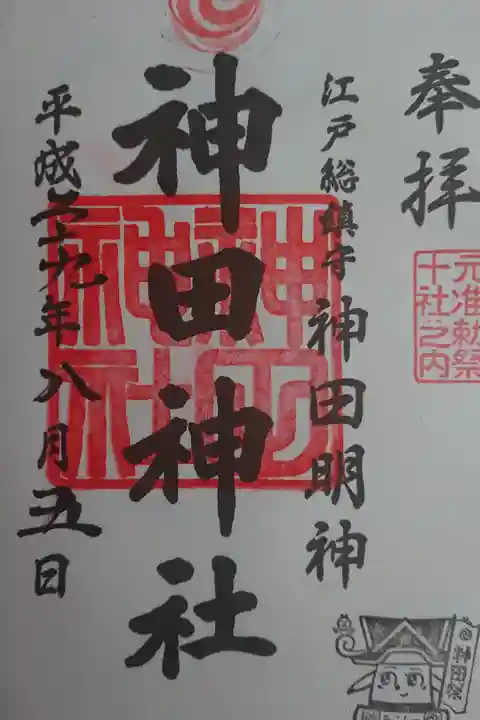 奉拝
元准勅祭
十社之内
江戸総鎮守 神田明神
神田神社
平成二十九年八月五日